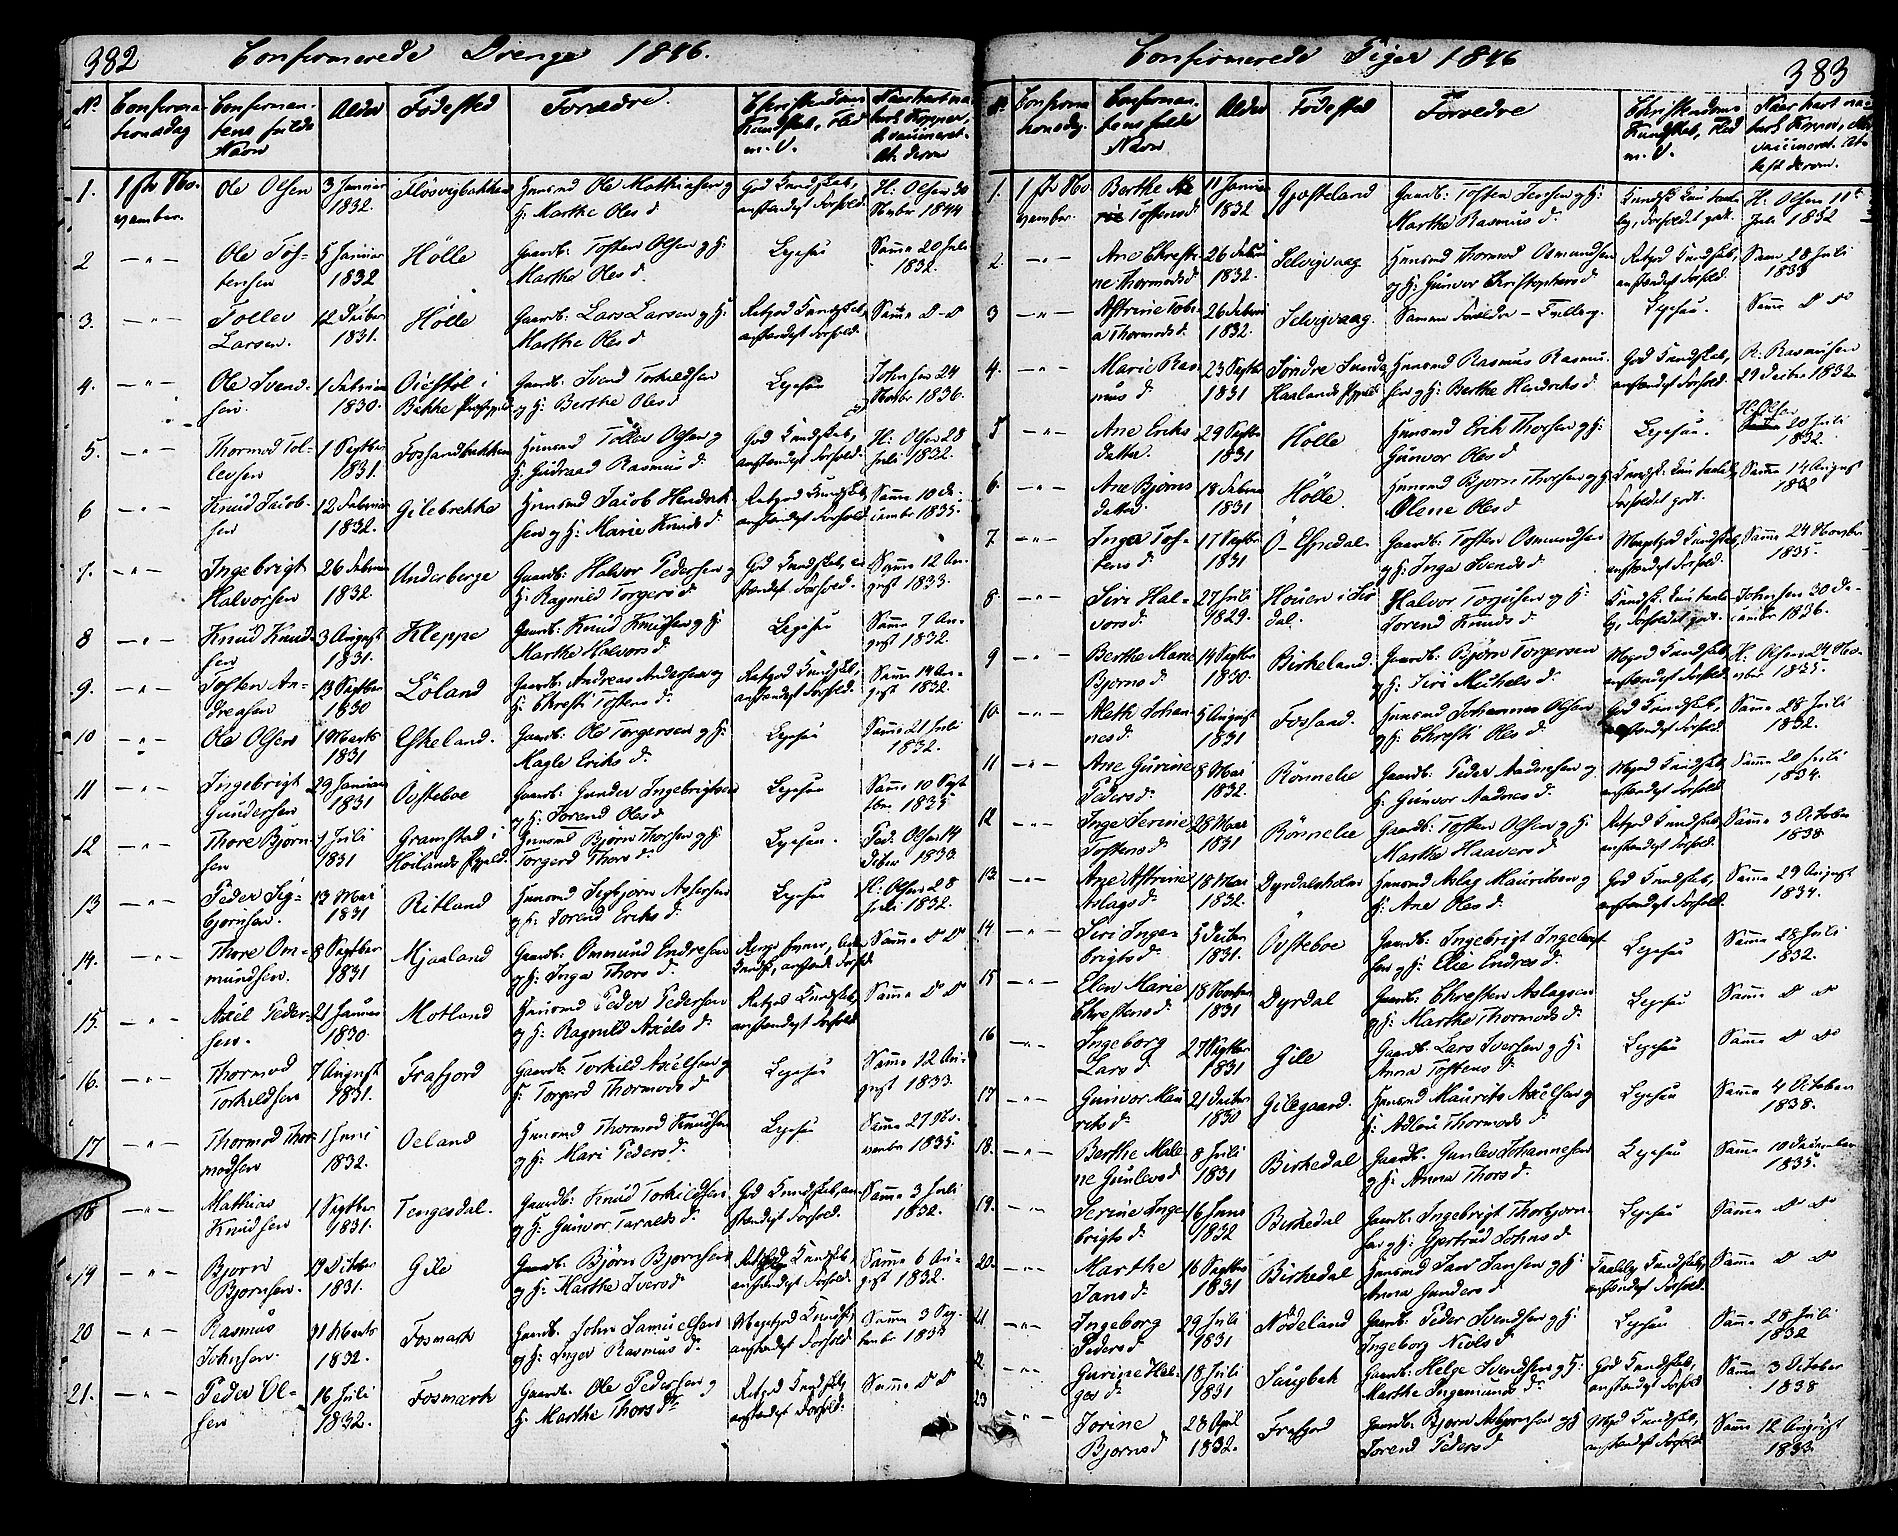 382
Confirmerede Drenge 1846.
No Confirmationsdag Confirmantens fulde Navn Alder Fødested Forældre. Christendoms Kundskab, Flid m. V. Naar havt naturl. Kopper, el. vaccineret. At. derom
1. 1ste November. Ole Olsen 3 Januar 1832. Flösvigbakken Huusmd Ole Mathiasen og H: Marthe Oles d. God Kundskab, anstændigt Forhold. H: Olsen 30 Novbr 1844
2 —„— Ole Tostensen 5 Januar 1832 Hölle Gaardb: Tosten Olsen og H: Marthe Oles d. Ligesaa Samme 20 Juli 1832.
3. —„— Tollev Larsen. 12 Decbr 1831. Hölle Gaardb: Lars Larsen og H: Marthe Oles d Retgod Kundskab, anstændigt Forhold. Samme d d
4. —„— Ole Svendsen. 1 Februar 1830. Oiestöl i Bakke Præstegjeld Gaardb: Svend Torkildsen og H: Berthe Oles d Ligesaa Johnsen 24 Novbr 1836.
5. —„— Thormod Tollevsen 1 Septbr 1831. Fossandbakken Huusmd Tollev Olsen og H: Gudraad Rasmus d. God Kundskab, anstændigt Forhold. H: Olsen 28 Juli 1832.
6 —„— Knud Jacobsen 12 Februar 1832. Gilebrekke Huusmd Jacob Hendriksen og H: Marie Knuds d. Retgod Kundskab, anstændigt Forhold Samme 10 December 1835.
7. —„— Ingebrigt Halvorsen 26 Februar 1832. Underberge Gaardb: Halvor Pedersen og H: Ragnild Torgers d. God Kundskab, anstændigt Forhold. Samme 12 August 1833.
8 —„— Knud Knudsen 3 August 1831. Kleppe Gaardb: Knud Knudsen og H: Marthe Halvors d. Ligesaa Samme 7 August 1832.
9. —„— Tosten Andreasen 13 Septbr 1830 Löland Gaardb: Andreas Andersen og H: Christi Tostens d. Retgod Kundskab, anstændigt Forhold. Samme 14 August 1832.
10 —„— Ole Olsen 1 Marts 1831 Eskeland. Gaardb: Ole Torgersen og H: Magle Eriks d. Ligesaa Samme 21 Juli 1832.
11 —„— Ingebrigt Gundersen 29 Januar 1831 Ovsteboe Gaardb: Gunder Ingebrigtsen og H: Torend Oles d Ligesaa Samme 10 Septbr 1835
12 —„— Thore Bjørnsen 7 Juli 1831 Gramstad i Höilands Pgjeld. Huusmd Bjørn Thorsen og H: Torgerd Thors d. Ligesaa. Ped. Olsen 14 Decbr 1833.
13 —„— Peder Sigbjørnsen. 13 Mai 1831 Ritland Huusmd Sigbjørn Assersen og H: Torend Eriks d. Ligesaa H: Olsen 28 Juli 1832.
14. —„— Thore Ommundsen. 8 Septbr 1831 Mjaaland Gaardb: Ommund Endresen og H: Inga Thors d. Samme d d
15. —„— Axel Pedersen. 21 Januar 1830. Motland Huusmd Peder Pedersen og H: Ragnild Axels d. Retgod Kundskab, anstændigt Forhold Samme d d
16. —„— Thormod Torkildsen 7 August 1831. Frafjord Gaardb: Torkild Axelsen og H: Torgerd Thormods d. Ligesaa Samme 12 August 1833.
17 —„— Thormod Thormodsen 1 Juni 1832. Oeland Huusmd Thormod Knudsen og H: Mari Peders d. Ligesaa Samme 27 November 1835.
18 —„— Mathias Knudsen 1 Septbr 1831. Tengesdal. Gaardb: Knud Torkildsen og H: Gunvor Taralds d. God Kundskab, anstændigt Forhold. Samme 3 Juli 1832.
19 —„— Bjørn Bjørnsen. 19 Octbr 1831. Gile Gaardb: Bjørn Bjørnsen og H: Marthe Ivers d. Retgod Kundskab, anstændigt Forhold. Samme 6 August 1832.
20 —„— Rasmus Johnsen. 31 Marts 1832. Fosmark Gaardb: John Samuelsen og H: Inger Rasmus d. Megetgod Kundsk, anstændigt Forhold. Samme 3 September 1833
21. —„— Peder Olsen 16 Juli 1832. Fosmark Gaardb: Ole Pedersen og H: Marthe Thors d. Retgod Kundskab, anstændigt Forhold. Samme d d
383
Confirmerede Piger 1846
No. Confirmationsdag. Confirmantens fulde Navn Alder Fødested Forældre Christendoms Kundskab, Flid m. V. Naar havt naturl. Kopper, el. vaccineret. Attest derom.
1. 1ste November. Berthe Marie Tostens d. 11 Januar 1832 Gjøsteland Gaardb: Tosten Jensen og H: Marthe Rasmus d. Kundsk. kun taalelig, Forholdet godt. H: Olsen 11te Juli 1832
2. —„— Ane Christine Thormods d. 26 Februar 1832. Selvigvaag Huusmd Thormod Osmundsen og H: Gunvor Christophers d. Retgod Kundskab, anstændigt Forhold. Samme 28 Juli 1833
3 —„— Astrine Tobia Thormods d. 26 Februar 1832. Selvigvaag Samme Forældre – Tvilling. Ligesaa. Samme d d
4. —„— Marie Rasmus d. 23 Septbr 1831 Søndre Sunde Haalands Pgjeld Huusmd Rasmus Rasmussen og H: Berthe Hendriks d. God Kundskab, anstændigt Forhold. R: Rasmusen 29 Decbr 1832.
5 —„— Ane Eriks datter 29 Septbr 1831 Hölle Huusmd Erik Thorsen og H: Gunvor Oles d. Ligesaa. H. Olsen 20 Juli 1832.
6. —„— Ane Bjørns datter 18 Februar 1831 Hölle Huusmd Bjørn Thorsen og H: Olene Oles d. Kundsk. kun taalel, Forholdet godt. Samme 14 August 1832
7. —„— Inga Tostens d. 17 Septbr 1831 Ö-Espedal Gaardb: Tosten Osmundsen og H: Inga Svends d. Megetgod Kundskab, anstændigt Forhold. Samme 24 November 1835.
8 —„— Siri Halvors d. 27 Juli 1829. Houen i Sirdal. Halvor Torgusen og H: Torend Knuds d. Kundsk. kun taalelig, Forholdet godt. Johnsen 30 December 1836.
9 —„— Berthe Marie Bjørns d. 14 Septbr 1830. Birkeland. Gaardb: Bjørn Torgersen og H: Siri Michels d. Megod Kundskab, anstændigt Forhold. H: Olsen 24 November 1835.
10. —„— Aleth Johannes d. 5 August 1831 Fossand. Huusmd Johannes Olsen og H: Christi Oles d. God Kundskab, anstændigt Forhold. Samme 28 Juli 1832.
11 —„— Ane Gurine Peders d. 8 Mai 1832. Rönnelie Gaardb: Peder Aadnesen og H: Gunvor Aadnes d. Megod Kundskab, anstændigt Forhold. Samme 20 Juli 1834.
12 —„— Inge Serine Tostens d. 28 Mai 1831 Rönnelie Gaardb: Tosten Olsen og H: Marthe Haavers d. Retgod Kundskab, anstændigt Forhold. Samme 3 October 1838
13. —„— Ane Astrine Aslags d. 18 Mai 1832. Dyrdalsholm Huusmd Aslag Mauritsen og H: Ane Oles d. God Kundskab, anstændigt Forhold. Samme 29 August 1834.
14 —„— Siri Ingebrigts d. 5 Decbr 1831. Ovsteboe Gaardb: Ingebrigt Ingebrigtsen og H: Elie Endres d. Ligesaa Samme 28 Juli 1832.
15 —„— Elen Marie Christens d. 18 Novbr 1831 Dyrdal Gaardb: Christen Aslagsen og H: Marthe Thormods d. Ligesaa Samme d d
16 —„— Ingeborg Lars d. 27 Septbr 1831 Gile Gaardb: Lars Iversen og H: Anna Tostens d. Ligesaa Samme d d
17 —„— Gunvor Maurits d. 21 Decbr 1830 Gilegaard. Huusmd Maurits Axelsen og H: Adlou Thormods d. Ligesaa Samme 4 October 1838.
18. —„— Berthe Malene Gunlevs d. 8 Juli 1831 Birkedal Gaardb: Gunlev Johannesen og H: Anna Thors d. Ligesaa Samme 10 December 1835.
19. —„— Serine Ingebrigts d. 16 Juni 1832 Birkedal Gaardb: Ingebrigt Thorbjørnsen og H: Gjertrud Johns d. Ligesaa Samme d d
20. —„— Marthe Jans d. 16 Septbr 1831 Birkedal Huusmd Jan Jansen og H: Anna Gunders d. Taalelig Kundskab, anstændigt Forhold. Samme d d
21 —„— Ingeborg Peders d. 29 Juli 1831 Nödeland Gaardb: Peder Svendsen og H: Ingeborg Niels d. Ligesaa Samme 28 Juli 1832
22. —„— Gurine Helges d. 18 Juli 1831 Saugbak Gaardb: Helge Svendsen og H: Marthe Ingemunds d. God Kundskab, anstændigt Forhold Samme 3 October 1838
23 —„— Torine Bjørns d 28 April 1832. Frafjord Gaardb: Bjørn Asbjørnsen og H: Torend Peders d Megod Kundskab, anstændigt Forhold. Samme 12 August 1833